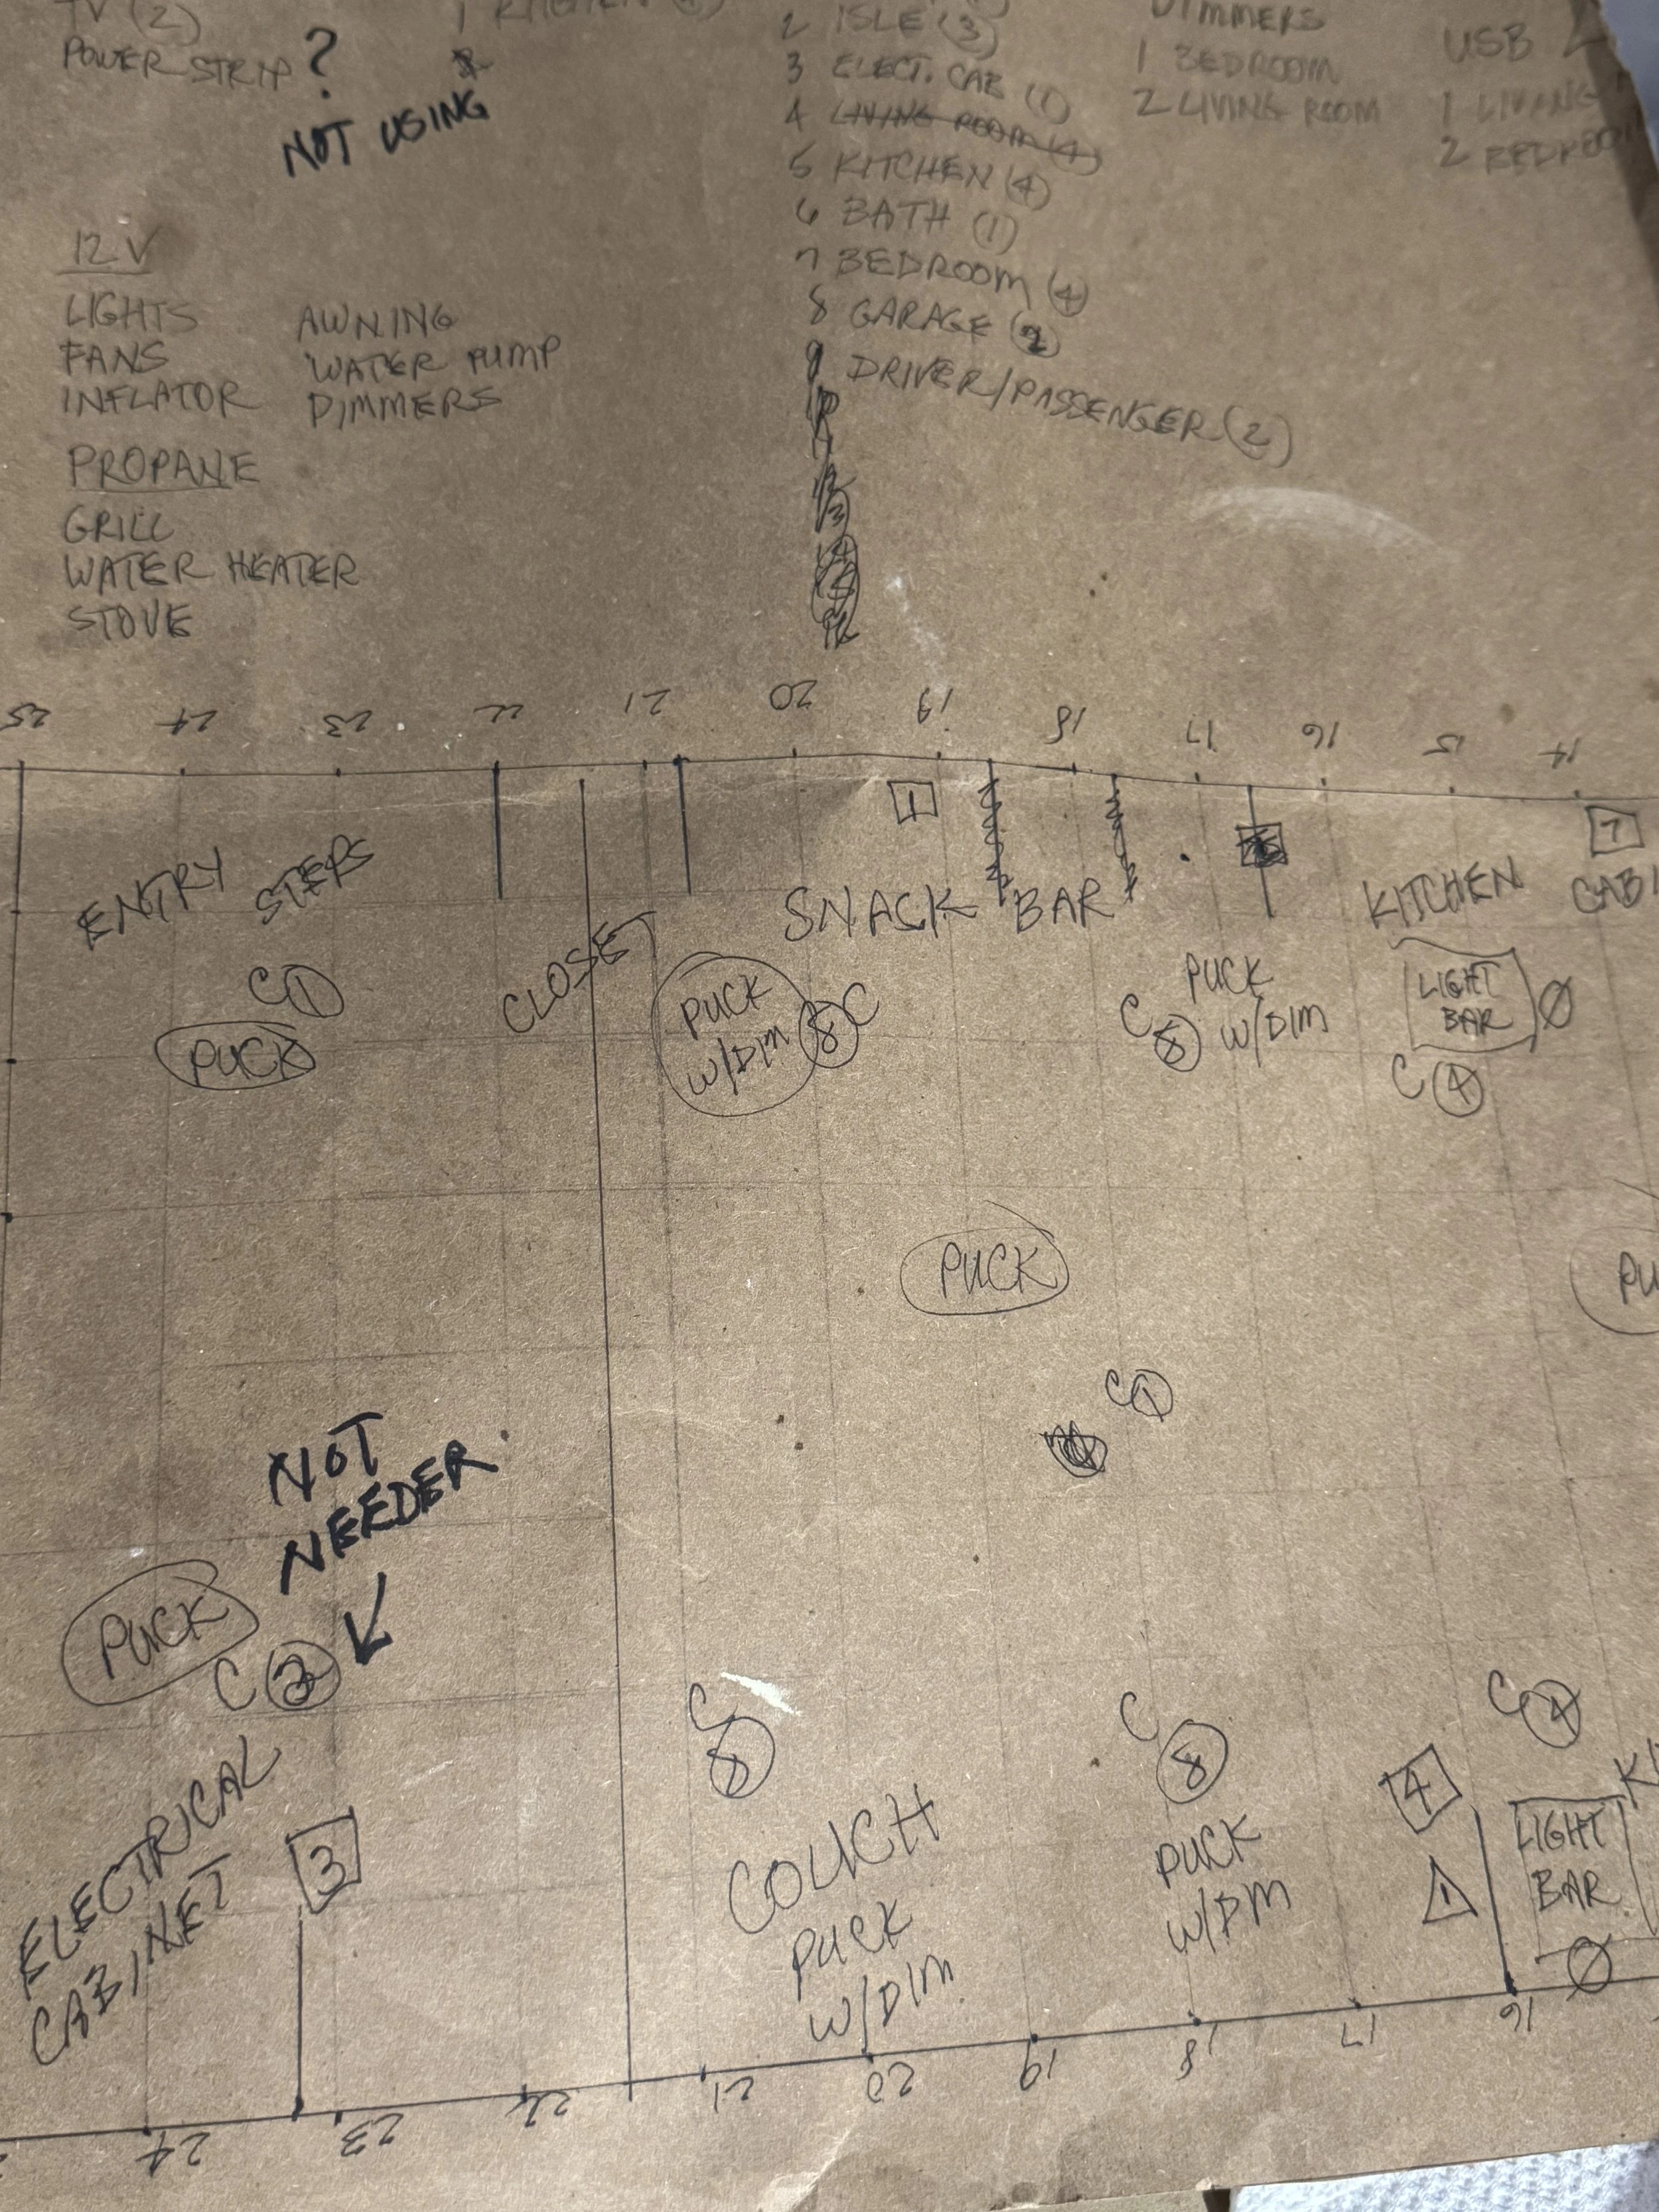 TV (2)
POWER STRIP ?
NOT USING
1 KITCHEN
2 ISLE (3)
3 ELECT. CAB (1)
4 LIVING ROOM (4)
5 KITCHEN (4)
6 BATH (1)
7 BEDROOM (4)
8 GARAGE (2)
9 DRIVER/PASSENGER (2)
DIMMERS
1 BEDROOM
2 LIVING ROOM
USB
1 LIVING
2 BEDROOM
12 V
LIGHTS
FANS
INFLATOR
AWNING
WATER PUMP
DIMMERS
PROPANE
GRILL
WATER HEATER
STOVE
25 24 23 22 21 20 19 18 17 16 15 14
1
7
ENTRY STEPS
CLOSET
SNACK BAR
KITCHEN CABI
C 1
PUCK
PUCK
W/DIM
8 C
C 8
PUCK
W/DIM
LIGHT
BAR
Ø
C 4
PUCK
PU
C 1
NOT
NEEDER
PUCK
C 2
ELECTRICAL
CABINET
3
C
8
COUCH
PUCK
W/DIM
C
8
PUCK
W/DIM
C 4
4
1
LIGHT
BAR
Ø
24 23 22 21 20 19 18 17 16